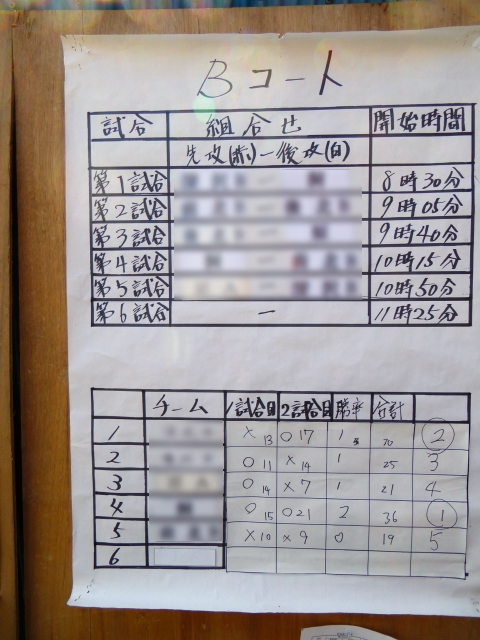 Bコート
試合 組合せ 開始時間
先攻(赤)ー後攻(白)
第1試合 ー 8時30分
第2試合 ー 9時05分
第3試合 ー 9時40分
第4試合 ー 10時15分
第5試合 ー 10時50分
第6試合 ー 11時25分
チーム 1試合目 2試合目 勝率 合計
1 ×13 ○17 1 30 ②
2 ○11 ×14 1 25 3
3 ○14 ×7 1 21 4
4 ○15 ○21 2 36 ①
5 ×10 ×9 0 19 5
6